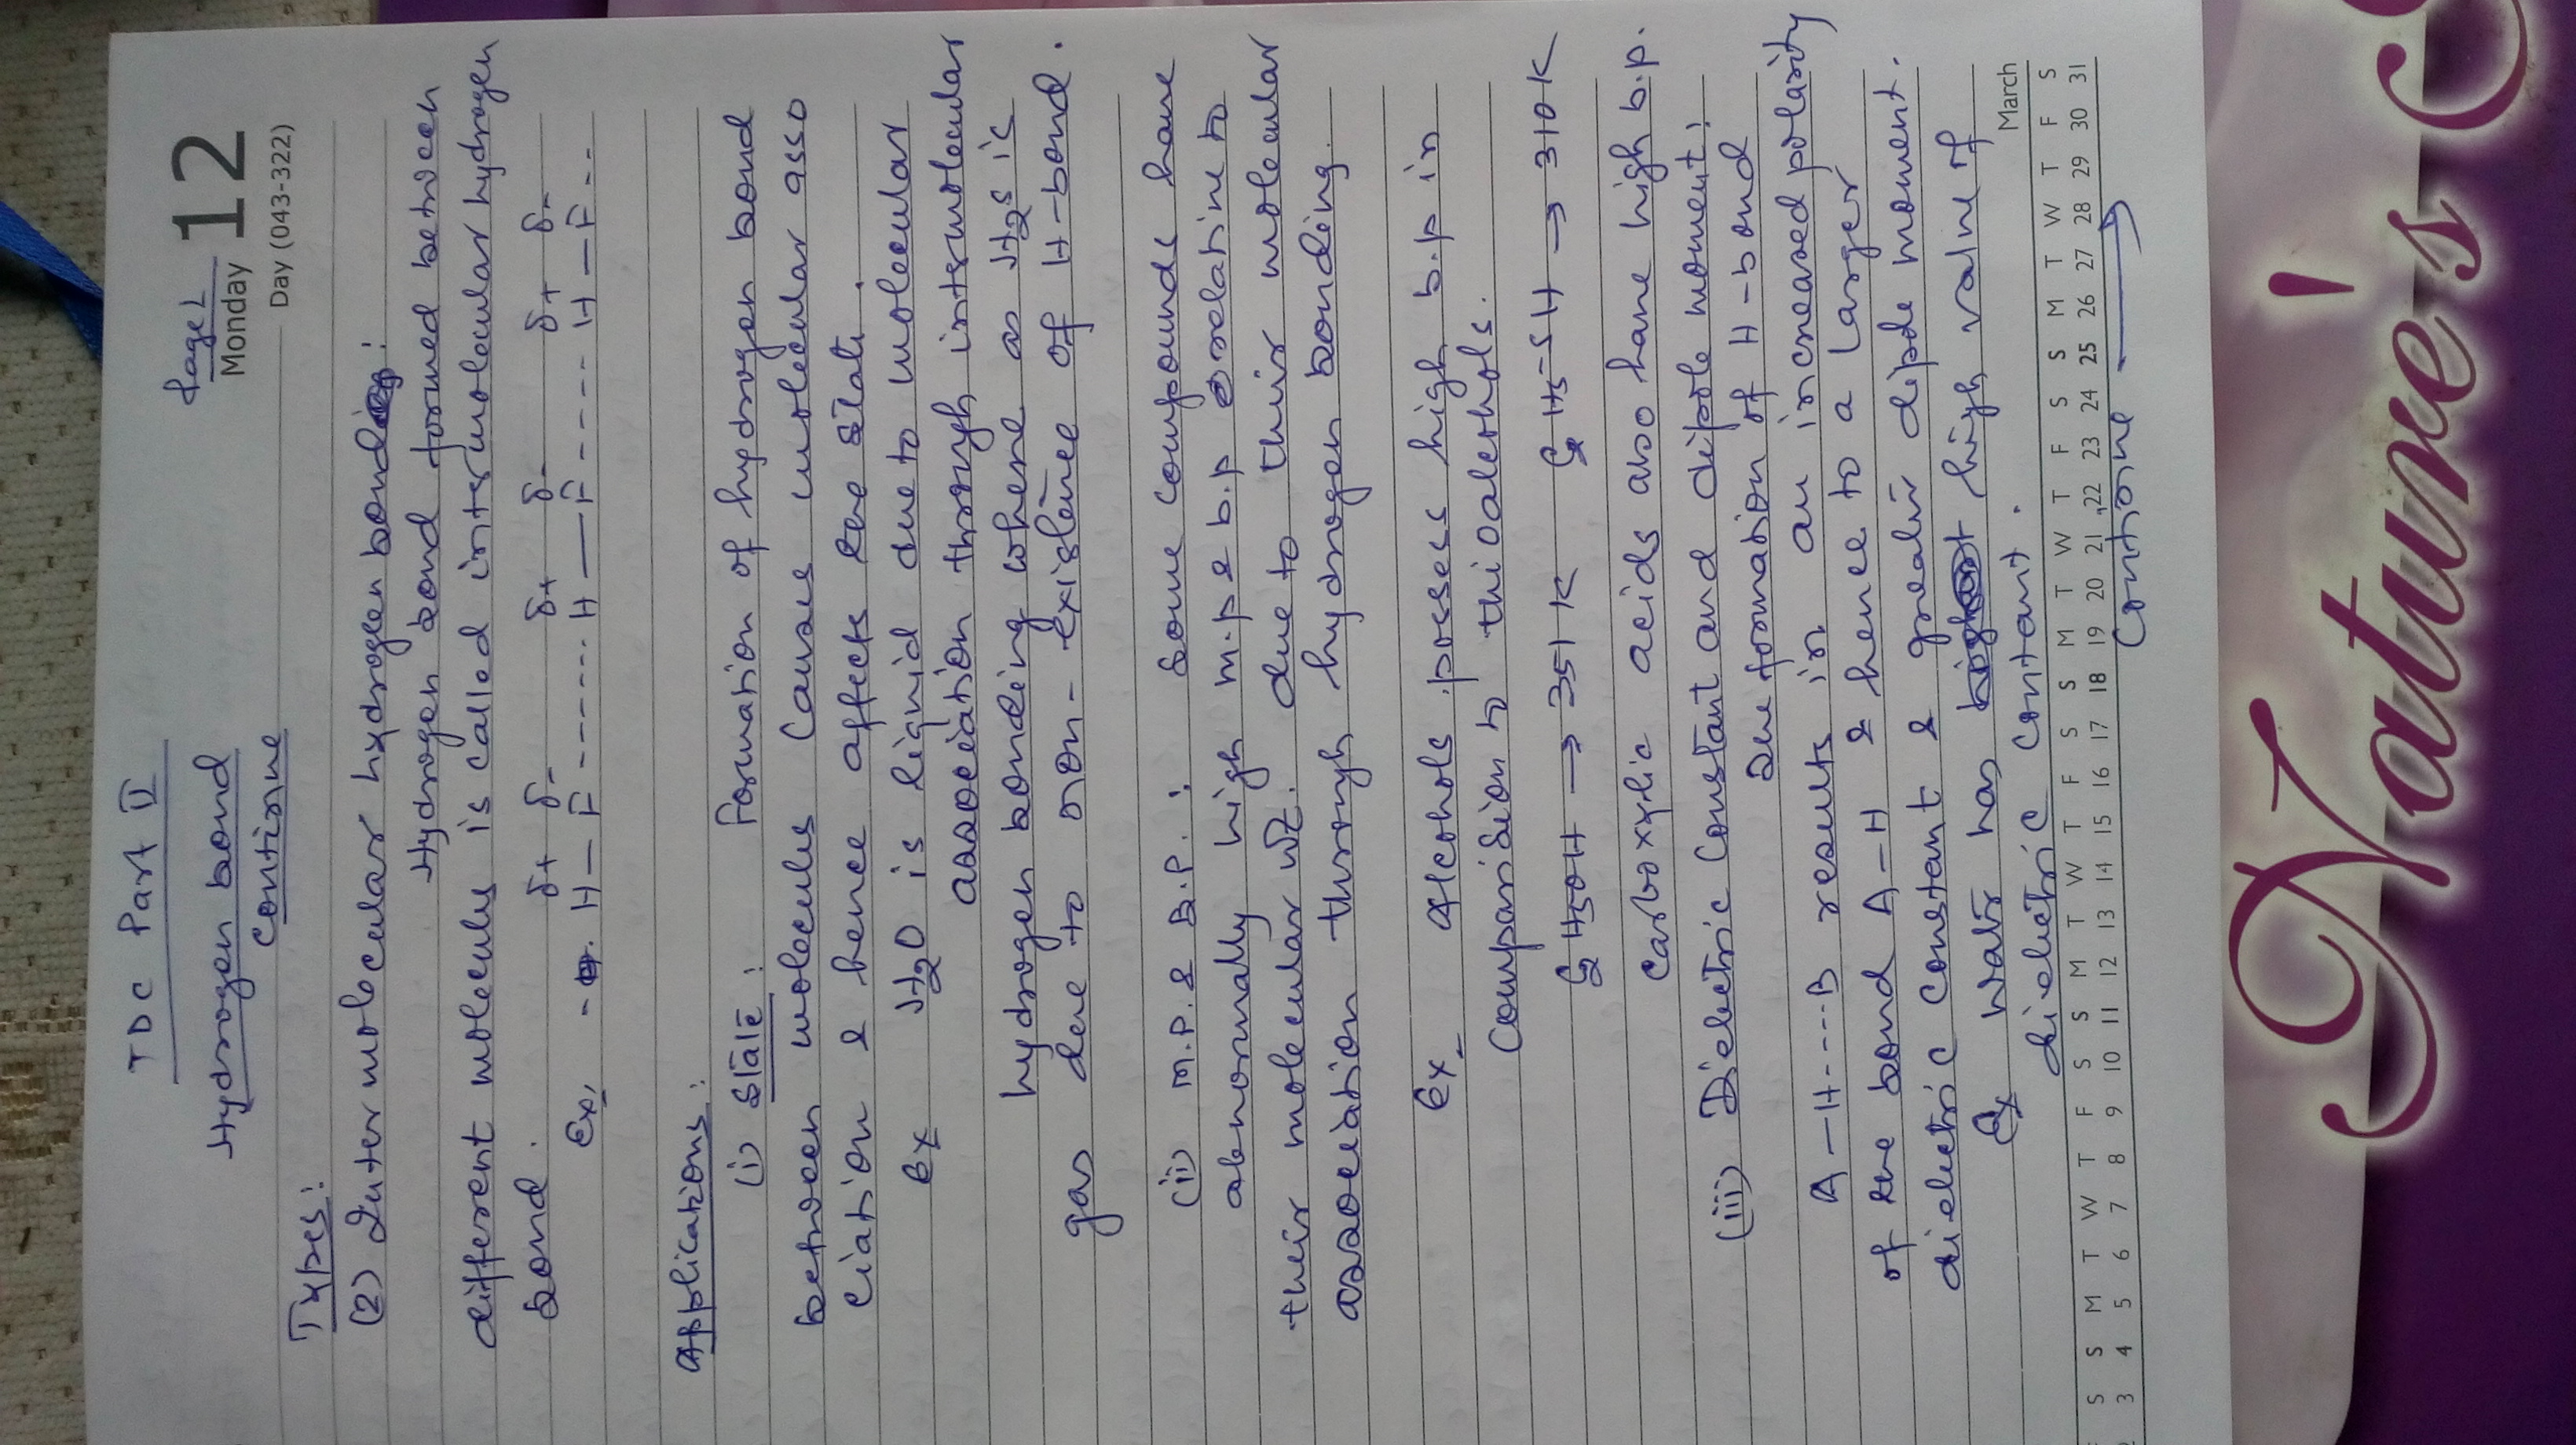 TDC Part II
Page 1
Monday 12
Hydrogen bond
Day (043-322)
Continue
Types:
(2) Intermolecular hydrogen bond:
Hydrogen bond formed between
different molecules is called intermolecular hydrogen
bond.
δ+ δ- δ+ δ- δ+ δ-
Ex, - H—F ------ H—F ---- H—F --
Applications:
(i) State: Formation of hydrogen bond
between molecules causes molecular asso
ciation & hence affects the state.
Ex H2O is liquid due to molecular
association through intermolecular
hydrogen bonding where as H2S is
gas due to non-existence of H-bond.
(ii) M.P. & B.P.: Some compounds have
abnormally high m.p & b.p relative to
their molecular wt. due to their molecular
association through hydrogen bonding.
Ex Alcohols possess high b.p in
Comparision to thioalcohols.
C2H5OH → 351 K C2H5-SH → 310 K
Carboxylic acids also have high b.p.
(iii) Dielectric Constant and dipole moment:
Due formation of H-bond
A—H----B results in an increased polarity
of the bond A-H & hence to a larger
dielectric constant & greater dipole moment.
Ex Water has high value of
dielectric contant.
March
F S S M T W T F S S M T W T F S S M T W T F S S M T W T F S
2 3 4 5 6 7 8 9 10 11 12 13 14 15 16 17 18 19 20 21 22 23 24 25 26 27 28 29 30 31
Continue →
Nature's